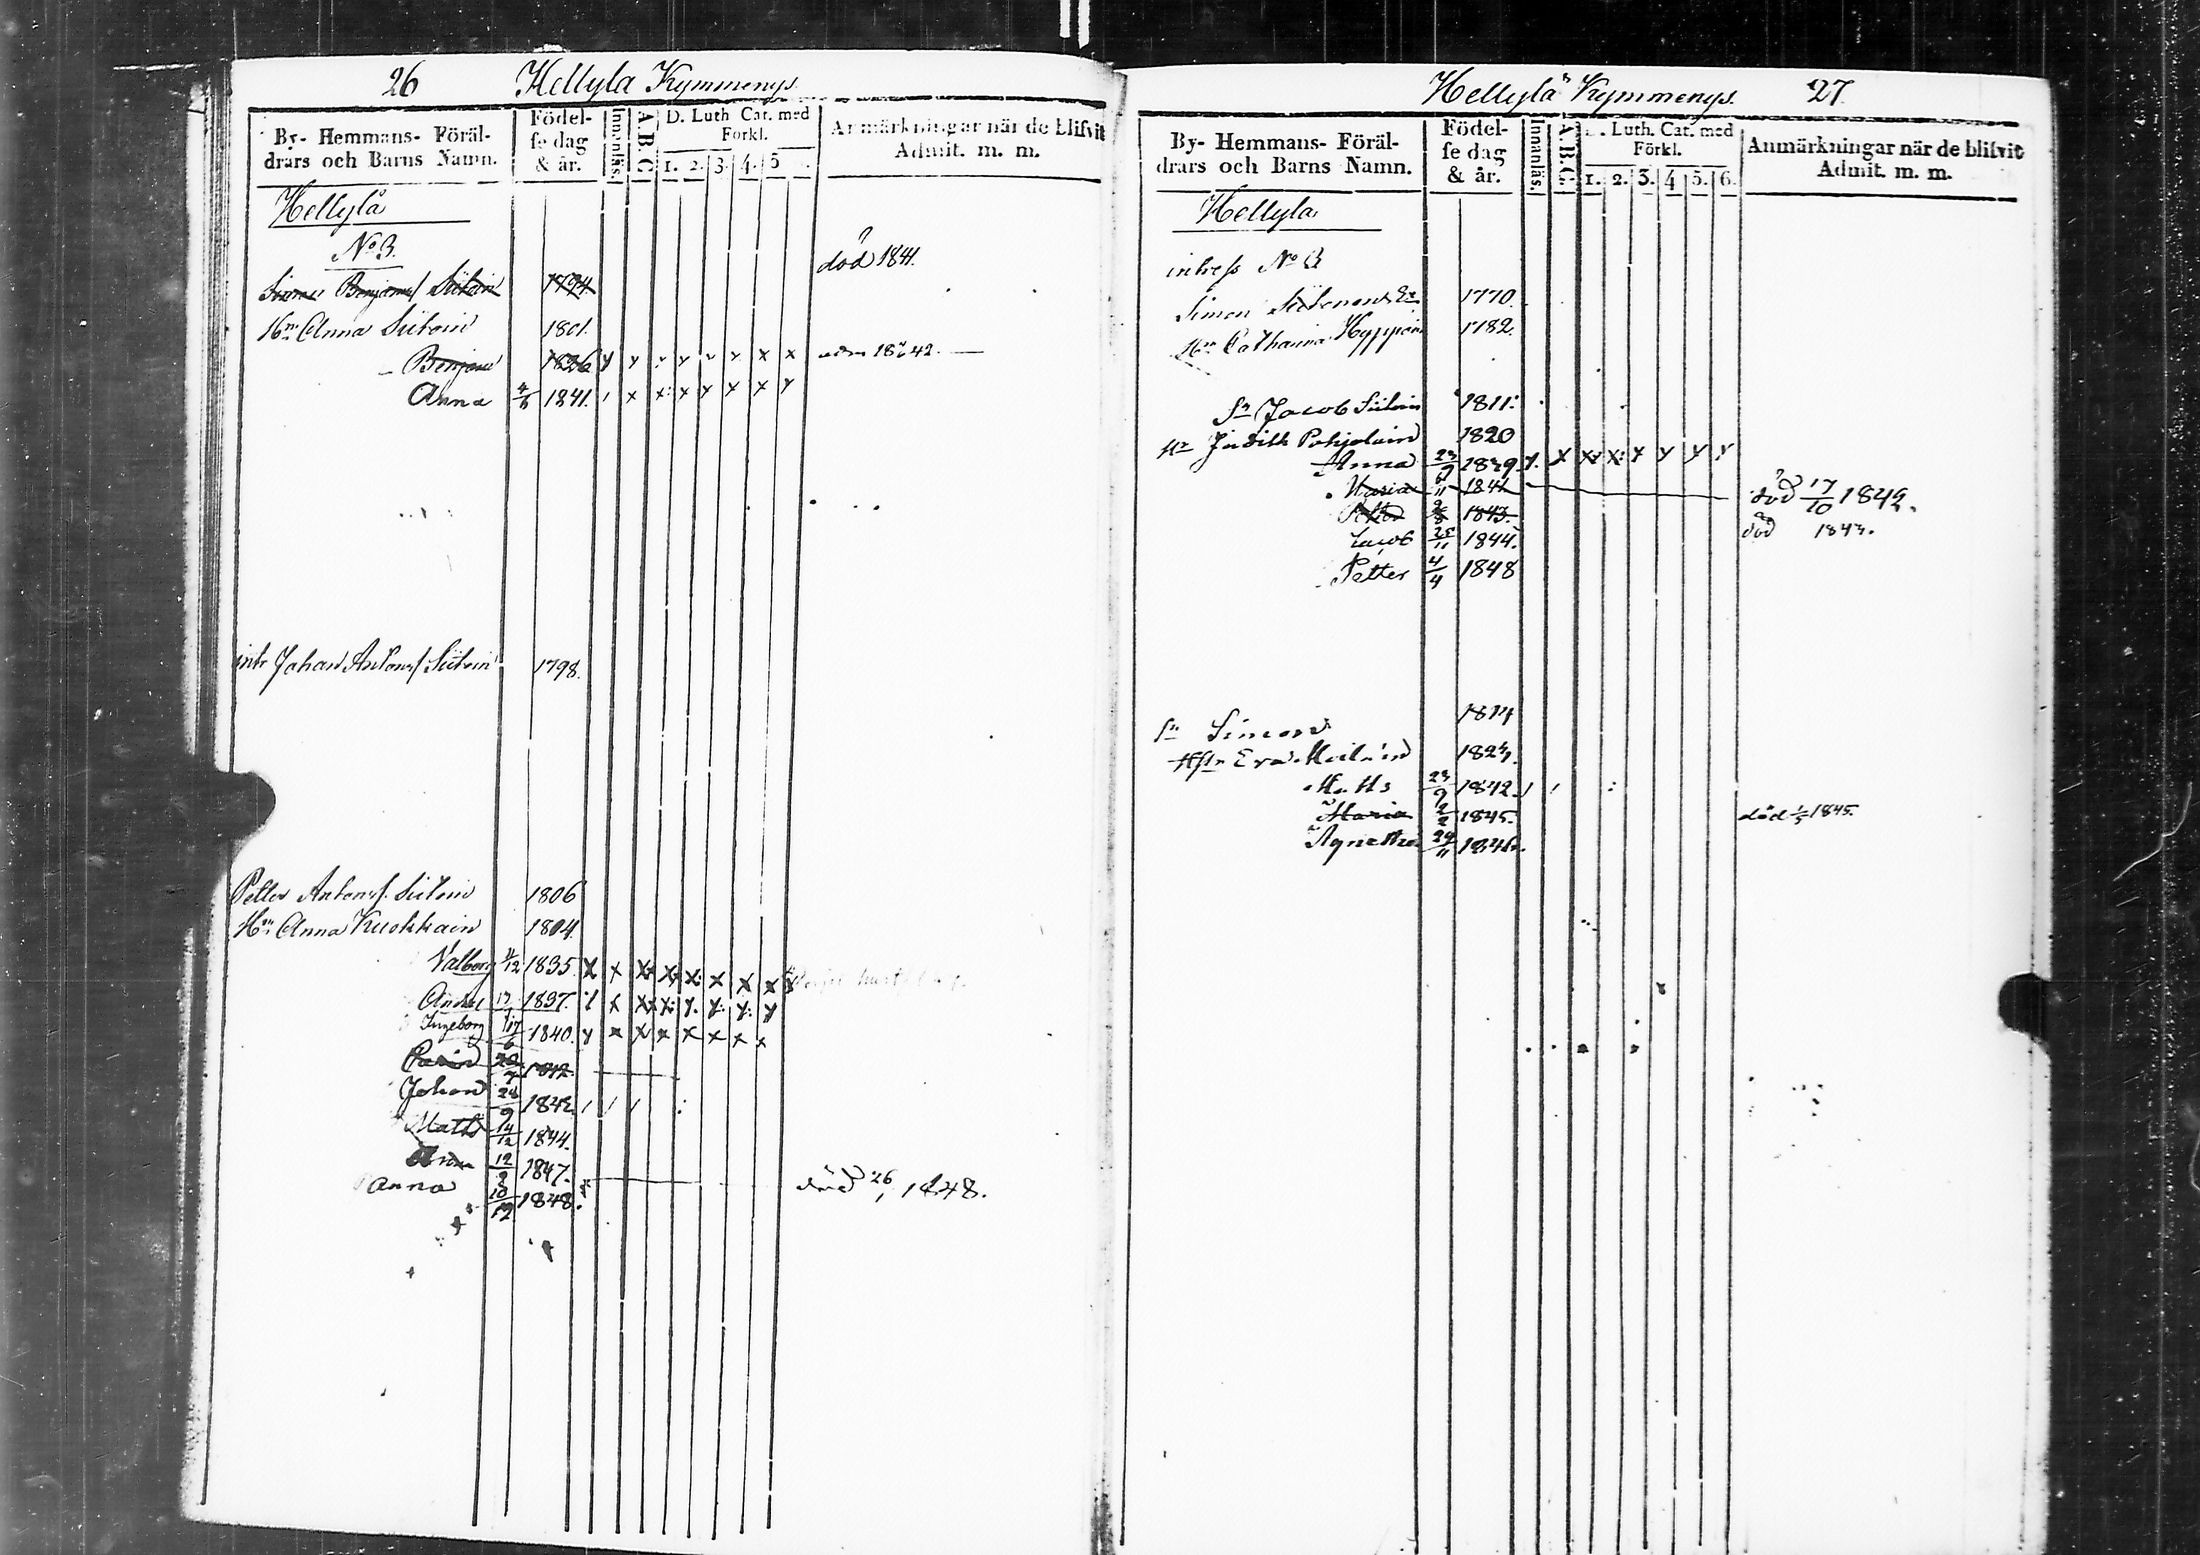 26 Hellylä Kymmenys
By- Hemmans- Föräl-
drars och Barns Namn.
Födel-
se dag
& år.
Innanläs.
A.B.C.
D. Luth Cat. med
Förkl.
1. 2. 3. 4. 5
Anmärkningar när de blifvit
Admit. m. m.
Hellylä
No 3.
Simon Benjams/ Siitoin 1794. död 1841.
Hu Anna Siitoin 1801.
Benjam 1826 adm 1842.
Anna 1841.
intr Johan Antons/ Siitoin 1798.
Petter Antons/. Siitoin 1806
Hu Anna Kuokkain 1804.
Valborg 1835.
Anders 1837.
Ingeborg 17/6 1840.
Carin 1842
Johan 28/9 1842
Matts 14/12 1844.
Anna 12/8 1847. död 26/1 1848.
Anna 10/12 1848.
Hellylä Kymmenys. 27.
By- Hemmans- Föräl-
drars och Barns Namn.
Födel-
se dag
& år.
Innanläs.
A.B.C.
Luth. Cat. med
Förkl.
1. 2. 3. 4 5. 6.
Anmärkningar när de blifvit
Admit. m. m.
Hellylä
intress No 3
Simon 1770.
Hu Catharina Hyppöin 1782.
Sn Jacob Siitoin 1811.
Hu Judith Pohjolain 1820
Anna 23/9 1839.
Maria 1841 död 17/10 1842.
Petter 1843. död 1843.
Jacob 25/11 1844.
Petter 4/4 1848
Sn Simon 1814
Eva 1823.
Matts 23/9 1842.
Maria 2/2 1845. död 1845.
Agnetha 24/11 1846.